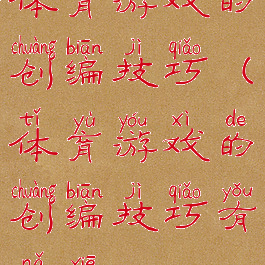 体育游戏的
chuàng biān jì qiǎo
创编技巧（
tǐ yù yóu xì de
体育游戏的
chuàng biān jì qiǎo yǒu
创编技巧有
nǎ xiē